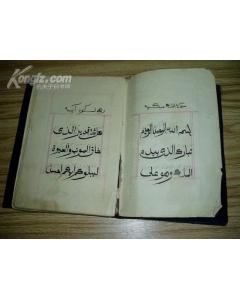 Kongfz.com
孔夫子旧书网
بسم الله الرحمن الرحيم
تبارك الذي بيده
الملك وهو على
قدير الذي
خلق الموت والحيوة
ليبلوكم ايكم احسن